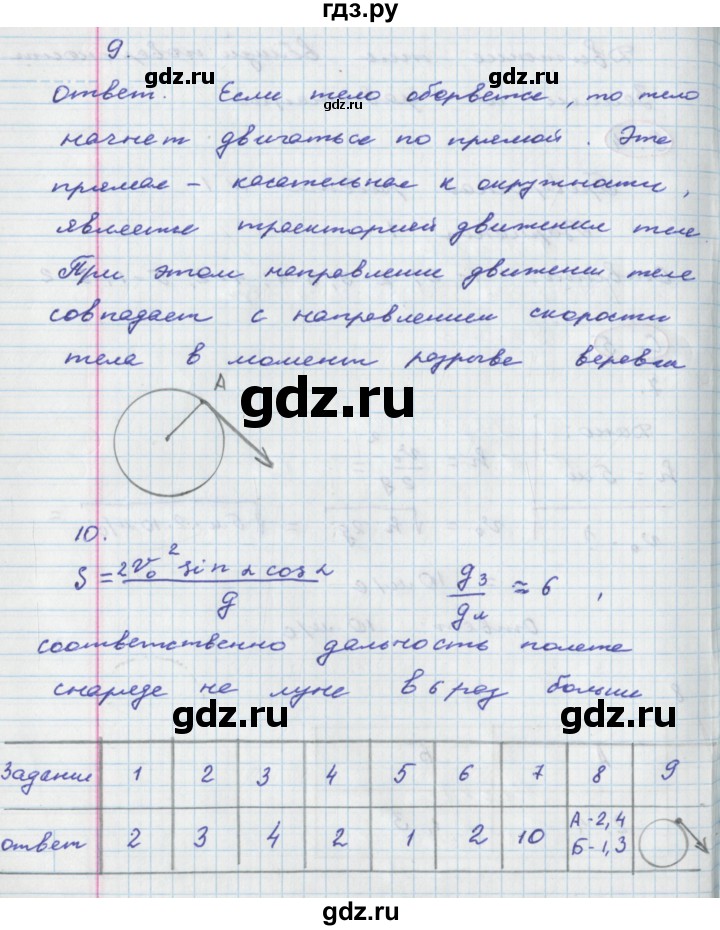 гдз.ру
9
Ответ. Если тело оборвется, то тело
начнет двигаться по прямой. Эта
прямая – касательная к окружности,
является траекторией движения тела.
При этом направление движения тела
совпадает с направлением скорости
тела в момент разрыва веревки
A
gdz.ru
gdz.ru
10.
S = 2v₀² sin α cos α / g
gз / gл ≈ 6 ,
соответственно дальность полета
снаряда на луне в 6 раз больше
gdz.ru
gdz.ru
Задание 1 2 3 4 5 6 7 8 9
ответ 2 3 4 2 1 2 10 А-2,4 Б-1,3
gdz.ru